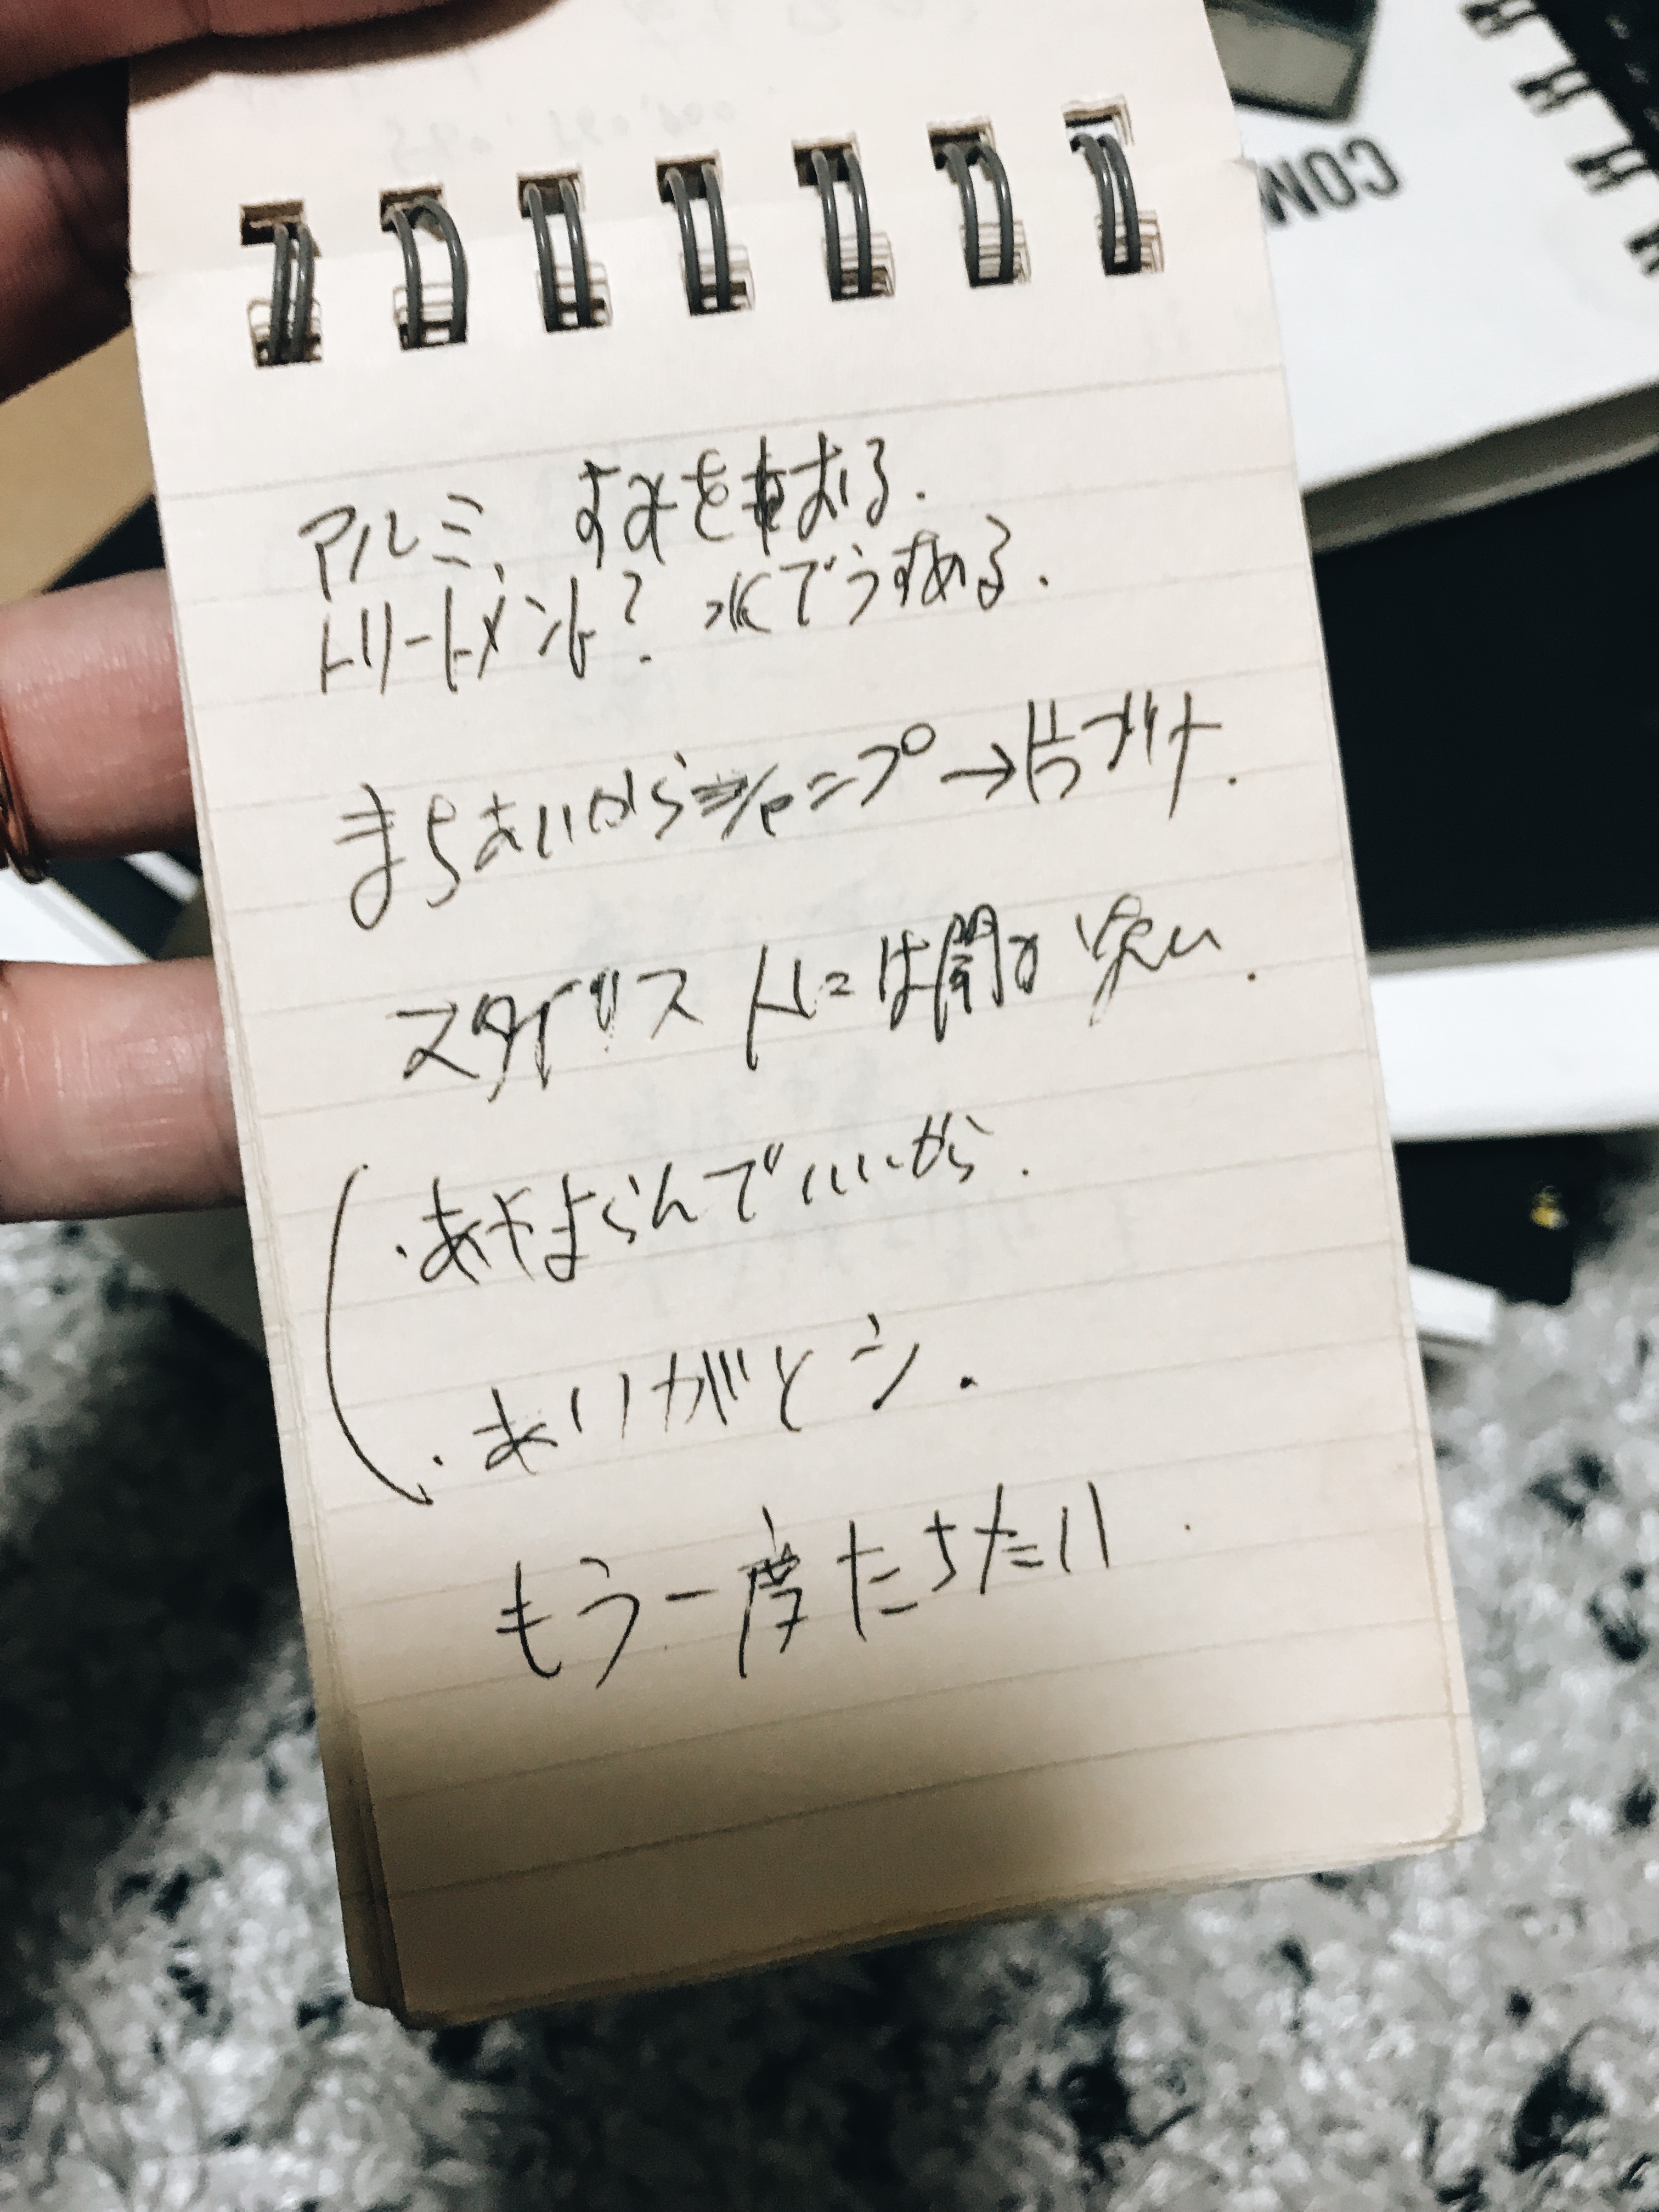 COM
アルミ、すみをおる.
トリートメント? 水でうすめる.
まちあいからシャンプ→片ブケ.
スタイリストには聞か ない.
・あやまらんでいいから.
・ありがとう.
もう一度たちたい